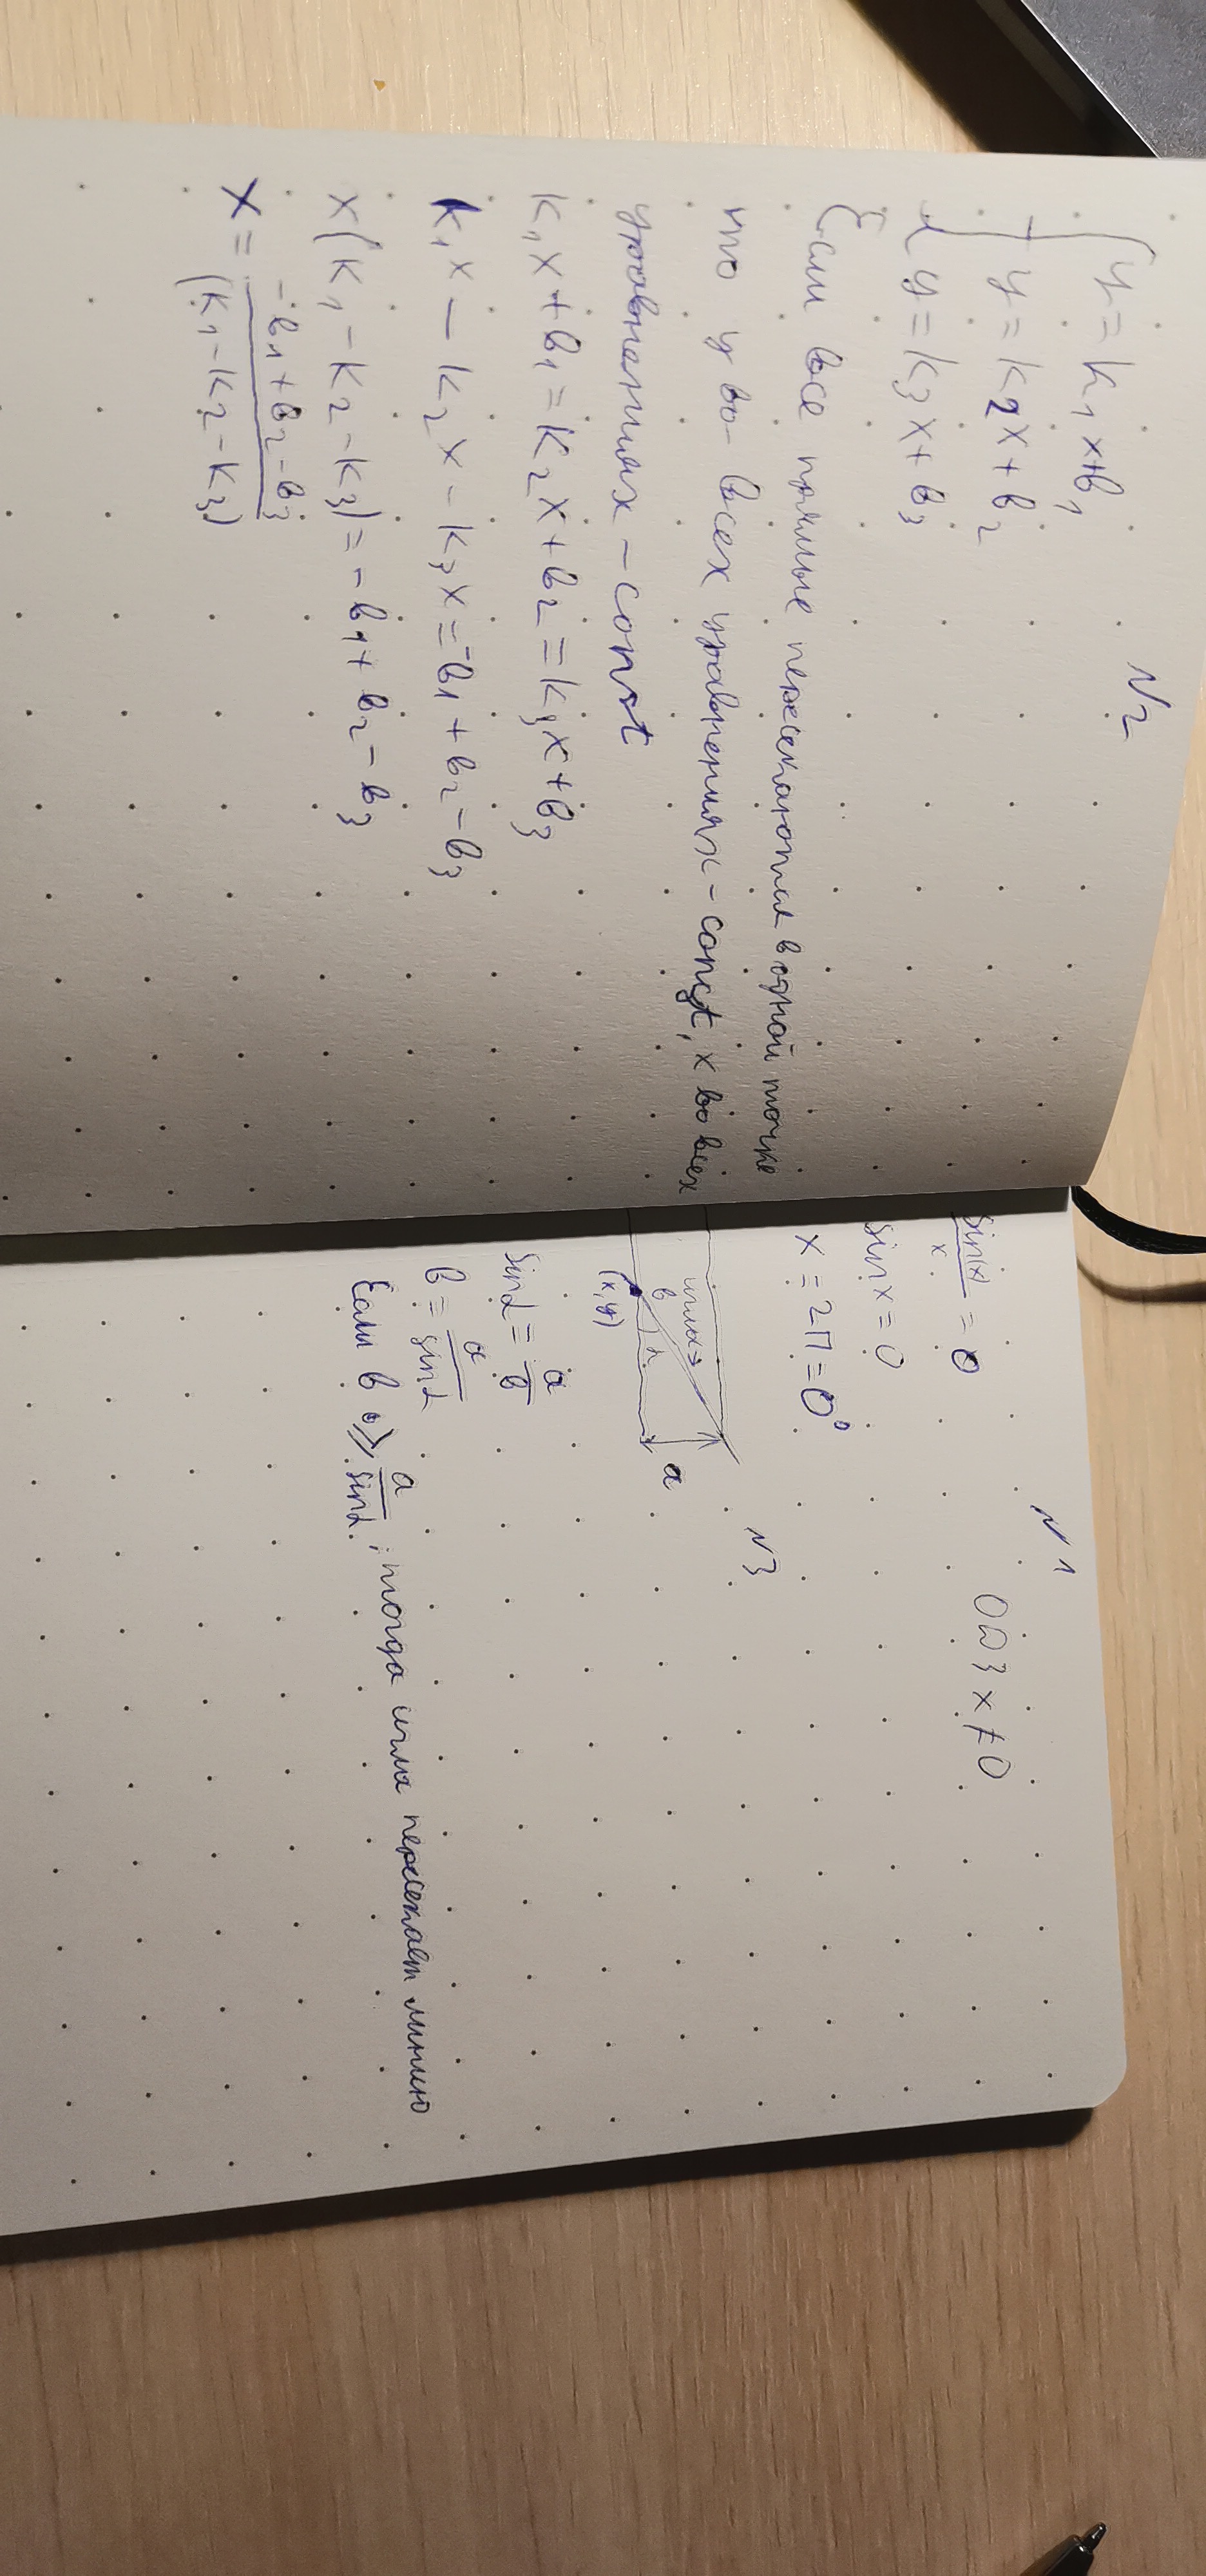 N2
y = k₁x+b₁
y = k₂x + b₂
y = k₃x + b₃
Если все прямые пересекаются в одной точке
то y во всех уравнениях - const, x во всех
уравнениях - const
k₁x + b₁ = k₂x + b₂ = k₃x + b₃
k₁x - k₂x - k₃x = -b₁ + b₂ - b₃
x(k₁ - k₂ - k₃) = -b₁ + b₂ - b₃
x = (-b₁ + b₂ - b₃)/(k₁ - k₂ - k₃)
N1
sin(x)/x = 0 ОДЗ x ≠ 0
sinx = 0
x = 2П = 0°
N3
игла
a
b
α
(x, y)
sinα = a/b
b = a/sinα
Если b ≥ a/sinα, тогда игла пересекает линию